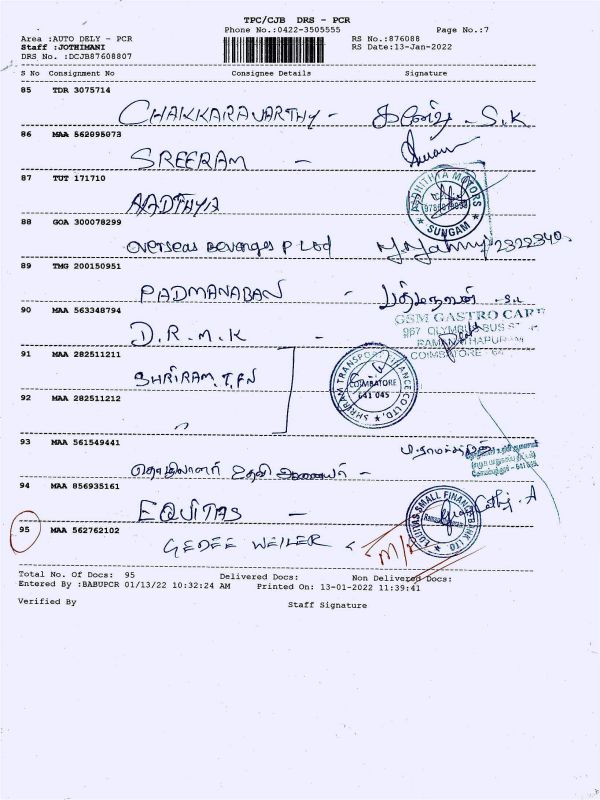 TPC/CJB DRS - PCR
Phone No.:0422-3505555 Page No.:7
Area :AUTO DELY - PCR RS No.:876088
Staff :JOTHIMANI RS Date:13-Jan-2022
DRS No. :DCJB87608807
S No Consignment No Consignee Details Signature
85 TDR 3075714
CHAKKARAVARTHY - S.K
86 MAA 562095073
SREERAM -
87 TUT 171710
AADTHYA
AADHITHYA MOTORS
SUNGAM
88 GOA 300078299
Overseas Bevenges P Ltd
89 TMG 200150951
PADMANABAN - பத்மநாபன்
90 MAA 563348794
D.R.M.K -
GSM GASTRO CARE
967 OLYMPUS BUS ST
RAMANATHAPURAM
COIMBATORE
91 MAA 282511211
SHRIRAM.T.FN
SHRIRAM TRANSPORT FINANCE CO LTD.
COIMBATORE
641 045
92 MAA 282511212
93 MAA 561549441
தொழிலாளர் உதவி ஆணையர் -
94 MAA 856935161
EQUITAS -
EQUITAS SMALL FINANCE BANK LTD
95 MAA 562762102
GEDEE WEILER
Total No. Of Docs: 95 Delivered Docs: Non Delivered Docs:
Entered By :BABUPCR 01/13/22 10:32:24 AM Printed On: 13-01-2022 11:39:41
Verified By Staff Signature